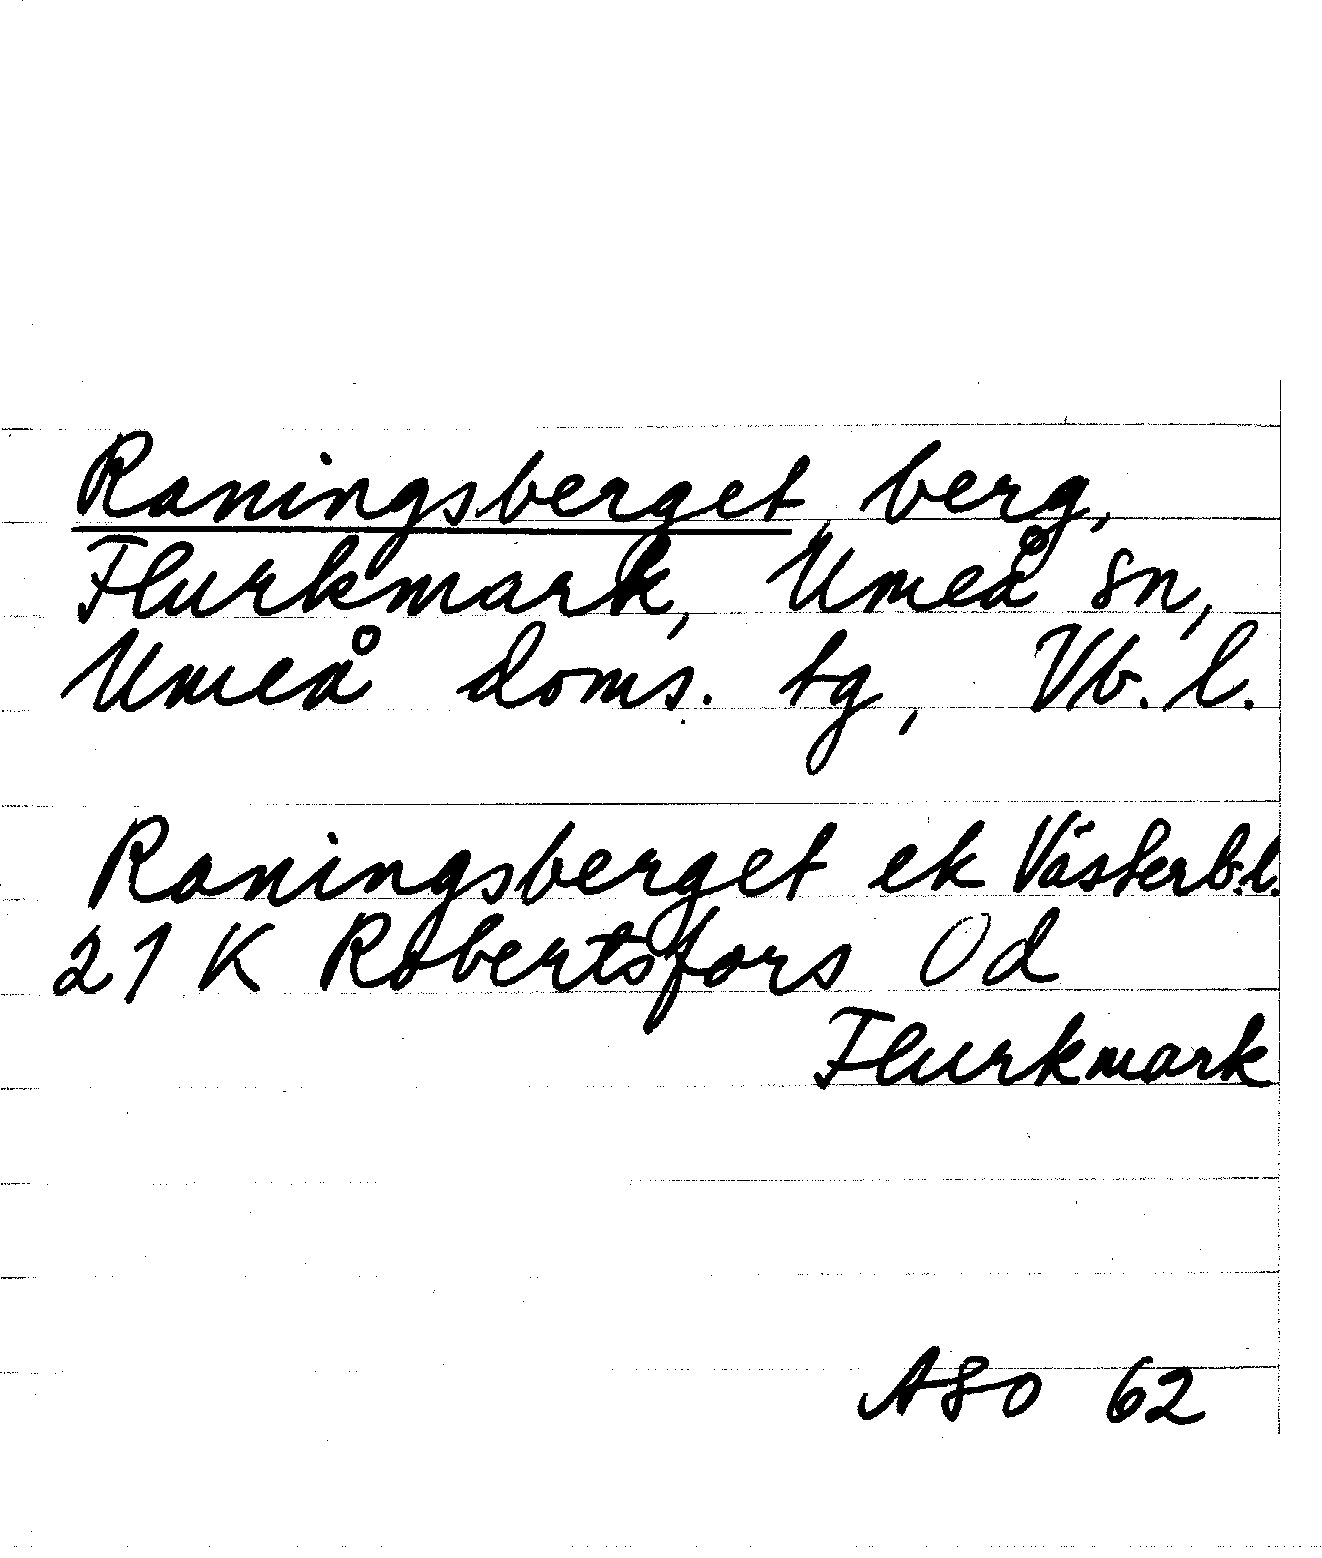 Raningsberget, berg,
Flurkmark, Umeå sn,
Umeå doms. tg, Vb. l.
Raningsberget ek Västerb.l.
21 K Robertsfors 0d
Flurkmark
ASO 62